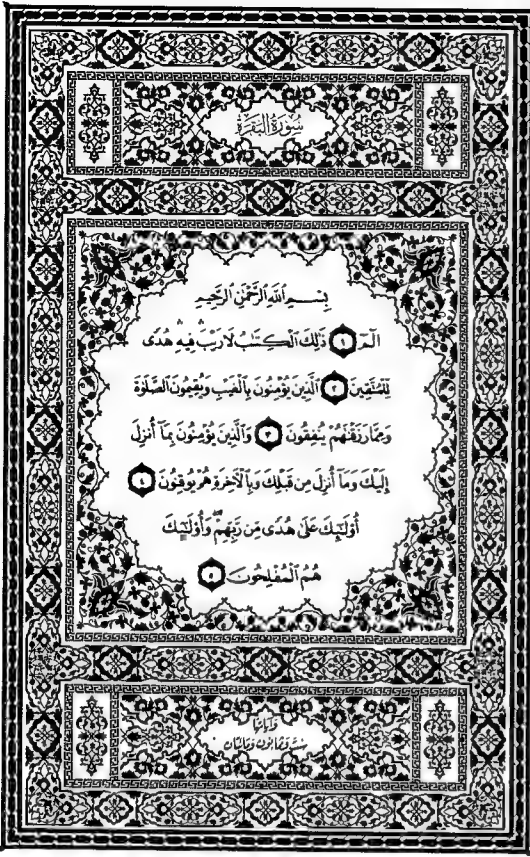 سُورَةُ الْبَقَرَةِ
بِسْمِ ٱللَّهِ ٱلرَّحْمَٰنِ ٱلرَّحِيمِ
الٓمٓ ١ ذَٰلِكَ ٱلْكِتَٰبُ لَا رَيْبَ ۛ فِيهِ ۛ هُدًى
لِّلْمُتَّقِينَ ٢ ٱلَّذِينَ يُؤْمِنُونَ بِٱلْغَيْبِ وَيُقِيمُونَ ٱلصَّلَوٰةَ
وَمِمَّا رَزَقْنَٰهُمْ يُنفِقُونَ ٣ وَٱلَّذِينَ يُؤْمِنُونَ بِمَآ أُنزِلَ
إِلَيْكَ وَمَآ أُنزِلَ مِن قَبْلِكَ وَبِٱلْءَاخِرَةِ هُمْ يُوقِنُونَ ٤
أُو۟لَٰٓئِكَ عَلَىٰ هُدًى مِّن رَّبِّهِمْ ۖ وَأُو۟لَٰٓئِكَ
هُمُ ٱلْمُفْلِحُونَ ٥
وَآيَاتُهَا
سِتٌّ وَثَمَانُونَ وَمِائَتَانِ